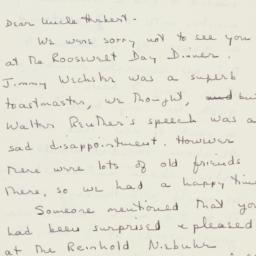 Dear Uncle Herbert -
We were sorry not to see you
at the Roosevelt Day Dinner.
Jimmy Wechsler was a superb
toastmaster, we thought, and but
Walter Reuther's speech was a
sad disappointment. However
there were lots of old friends
there, so we had a happy time
Someone mentioned that you
had been surprised & pleased
at the Reinhold Niebuhr